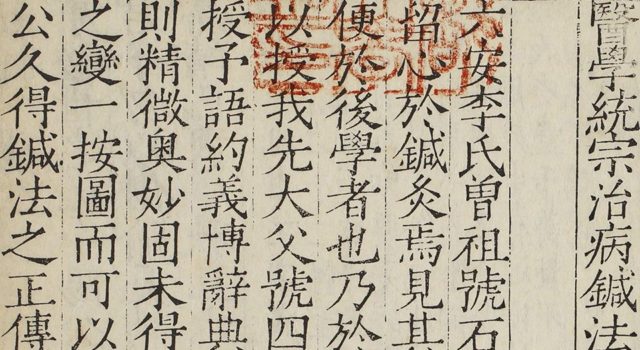 醫學統宗治病鍼法
六安李氏曾祖號石
留心於鍼灸焉見其
便於後學者也乃於
以授我先大父號四
授予語約義博辭典
則精微奧妙固未得
之變一按圖而可以
公久得鍼法之正傳